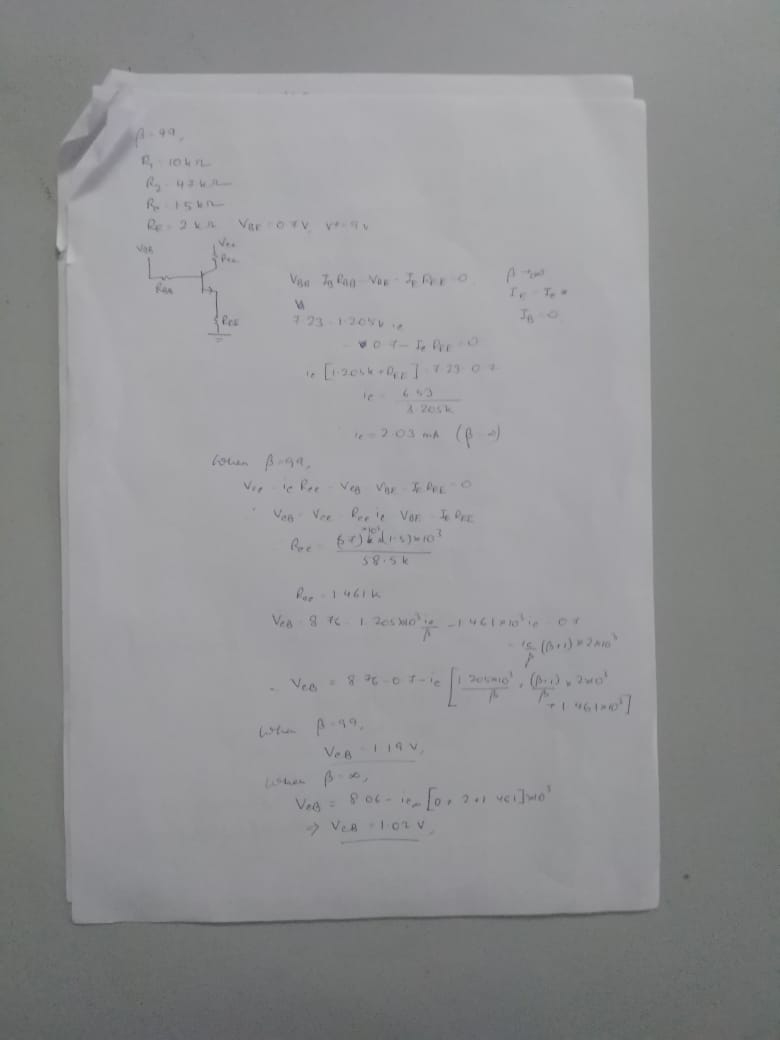 β = 99,
R₁ = 10 kΩ
R₂ = 47 kΩ
Rc = 1.5 kΩ
RE = 2 kΩ VBE = 0.7 V, V+ = 9 V
VBB
Vcc
Rcc
RBB
REE
VBB - IB RBB - VBE - IE REE = 0
β → ∞
IE = Ic
IB = 0
7.23 - 1.205k ic
- 0.7 - Ic REE = 0
ic [1.205k + REE] = 7.23 - 0.7
ic = 6.53 / 3.205k
ic = 2.03 mA (β = ∞)
When β = 99,
Vcc - ic Rcc - VCB - VBE - IE REE = 0
VCB = Vcc - Rcc ic - VBE - IE REE
Rcc = (57)×10³ × (1.5)×10³ / 58.5 k
Rcc = 1.461 k
VCB = 8.76 - 1.205×10³ ic/β - 1.461×10³ ic - 0.7
- ic/β (β+1) × 2×10³
VCB = 8.76 - 0.7 - ic [1.205×10³/β + (β+1)/β × 2×10³
+ 1.461×10³]
When β = 99,
VCB = 1.19 V,
When β = ∞,
VCB = 8.06 - ic∞ [0 + 2 + 1.461]×10³
⇒ VCB = 1.02 V,